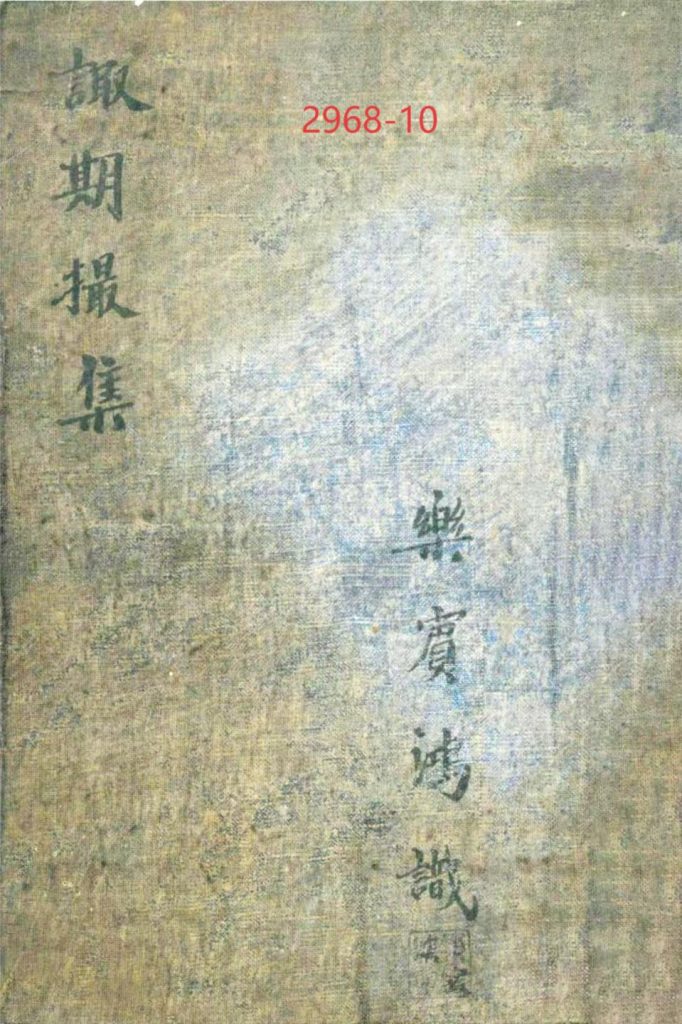 2968-10
諏期撮集
樂賓鴻識